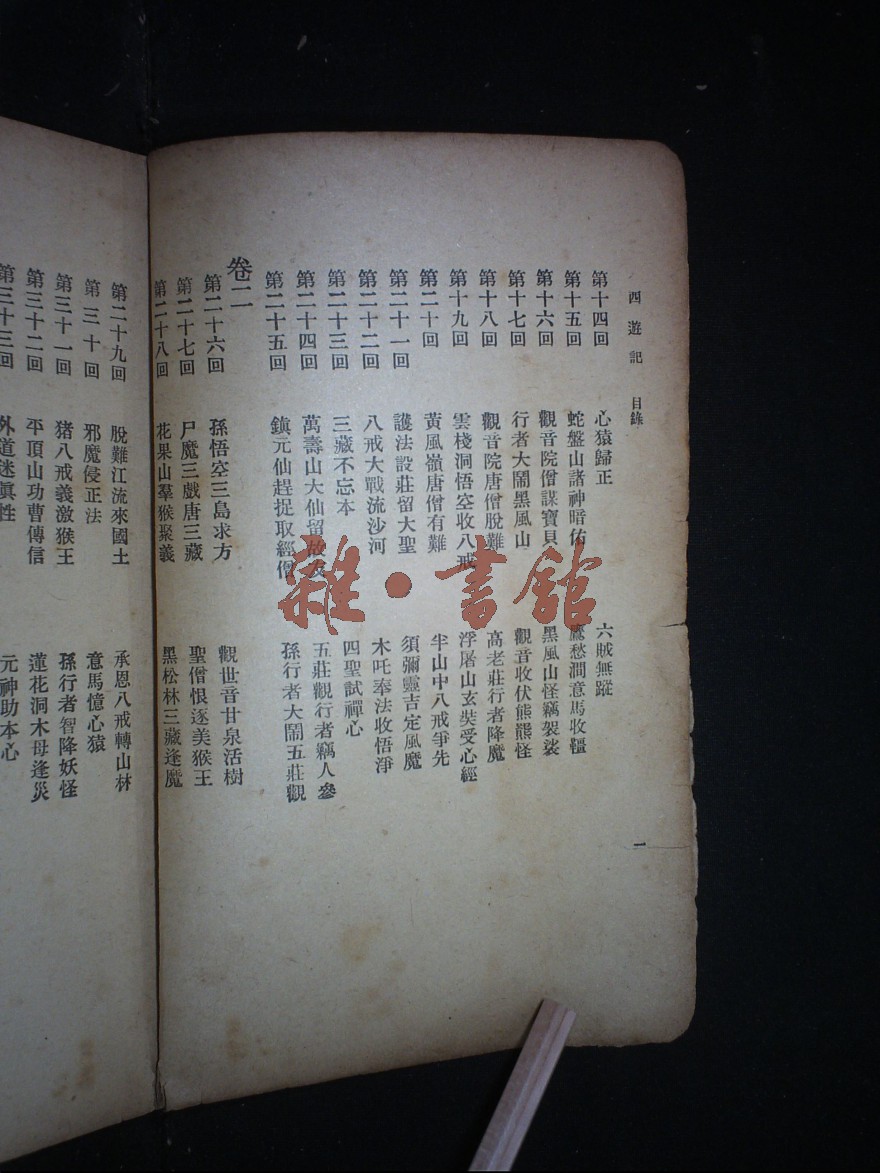 西遊記 目錄
一
第十四回 心猿歸正 六賊無蹤
第十五回 蛇盤山諸神暗佑 鷹愁澗意馬收韁
第十六回 觀音院僧謀寶貝 黑風山怪竊袈裟
第十七回 行者大鬧黑風山 觀音收伏熊羆怪
第十八回 觀音院唐僧脫難 高老莊行者降魔
第十九回 雲棧洞悟空收八戒 浮屠山玄奘受心經
第二十回 黃風嶺唐僧有難 半山中八戒爭先
第二十一回 護法設莊留大聖 須彌靈吉定風魔
第二十二回 八戒大戰流沙河 木吒奉法收悟淨
第二十三回 三藏不忘本 四聖試禪心
第二十四回 萬壽山大仙留故友 五莊觀行者竊人參
第二十五回 鎮元仙趕捉取經僧 孫行者大鬧五莊觀
卷二
第二十六回 孫悟空三島求方 觀世音甘泉活樹
第二十七回 尸魔三戲唐三藏 聖僧恨逐美猴王
第二十八回 花果山羣猴聚義 黑松林三藏逢魔
第二十九回 脫難江流來國土 承恩八戒轉山林
第三十回 邪魔侵正法 意馬憶心猿
第三十一回 猪八戒義激猴王 孫行者智降妖怪
第三十二回 平頂山功曹傳信 蓮花洞木母逢災
第三十三回 外道迷眞性 元神助本心
雜·書館